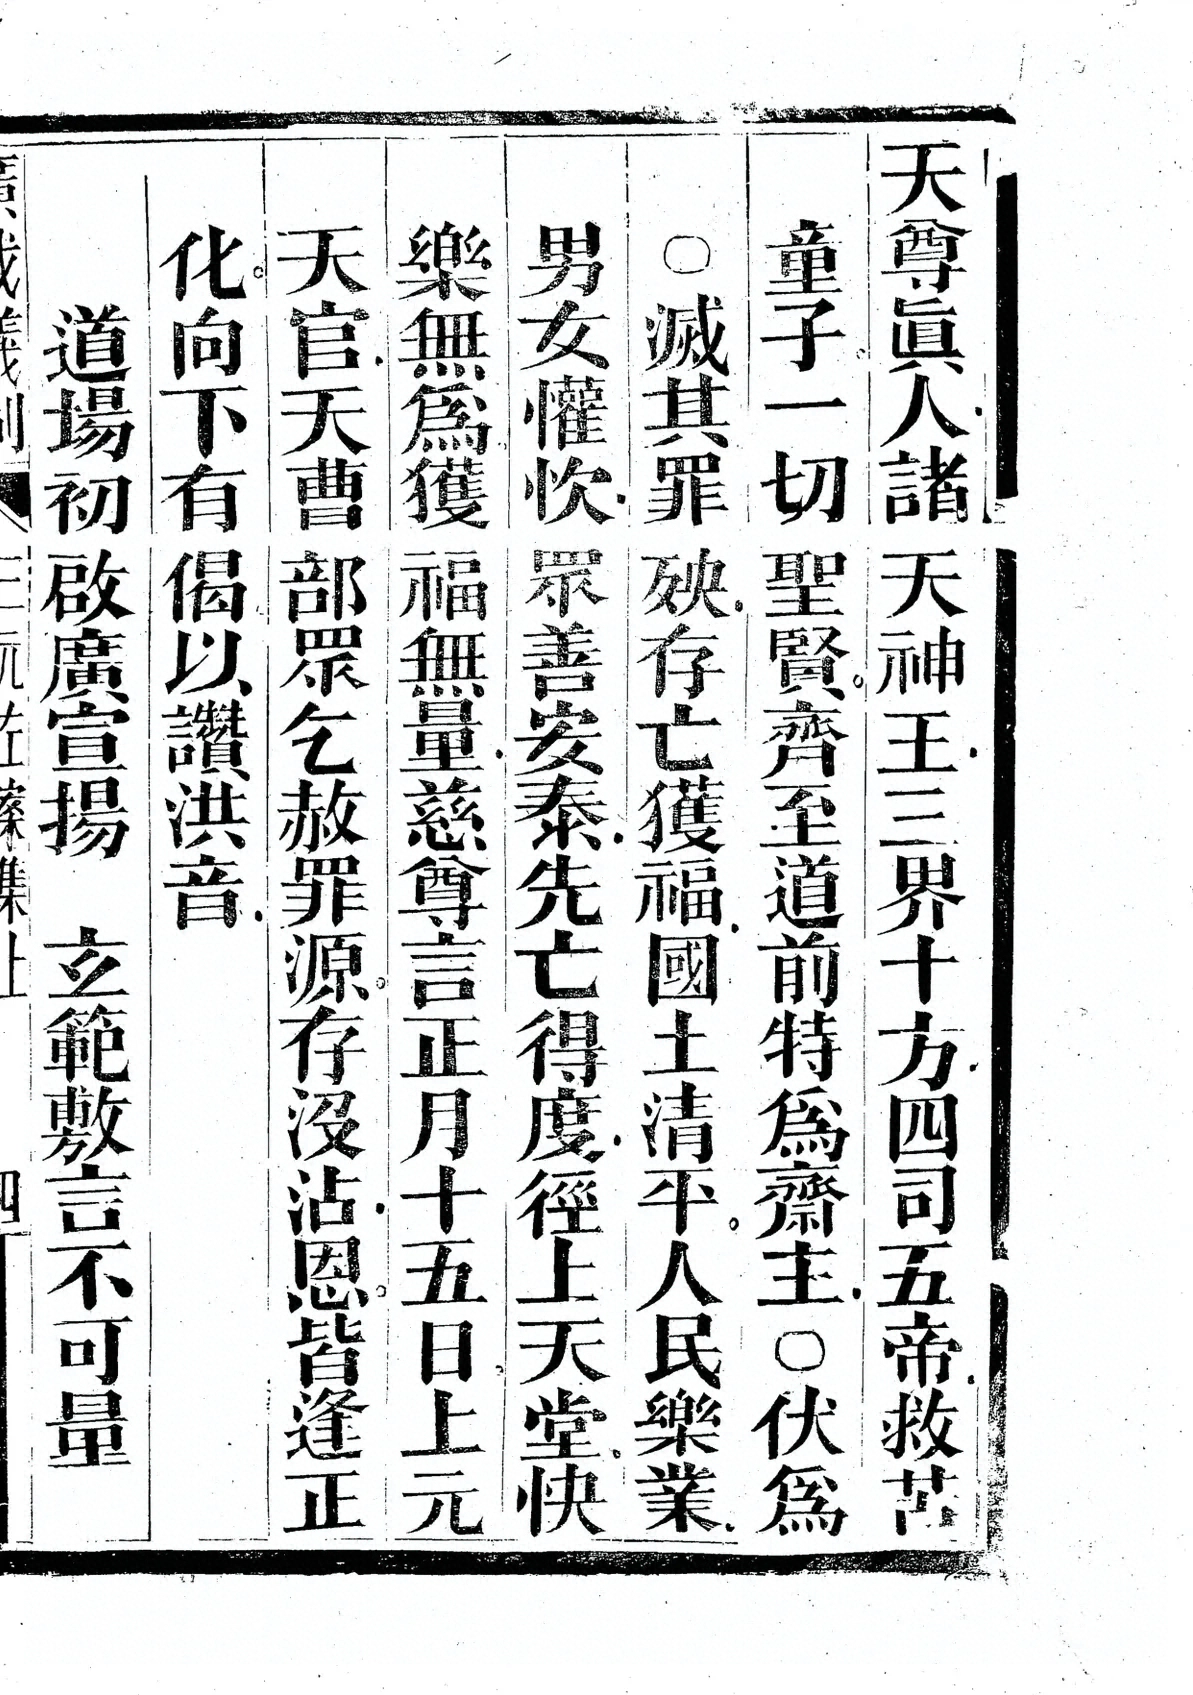 天尊眞人諸天神王三界十方四司五帝救苦
童子一切聖賢齊至道前特爲齋主○伏爲
○滅其罪殃存亡獲福國土清平人民樂業
男女懽忺眾善安泰先亡得度徑上天堂快
樂無爲獲福無量慈尊言正月十五日上元
天官天曹部眾乞赦罪源存沒沾恩皆逢正
化向下有偈以讚洪音
道場初啟廣宣揚　玄範敷言不可量
廣成儀制　三元